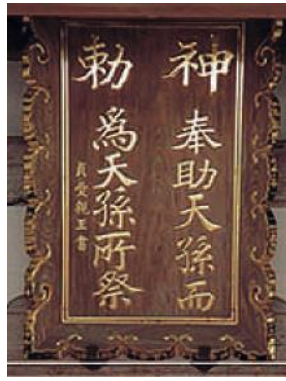 神勅
奉助天孫而
為天孫所祭
貞愛親王書